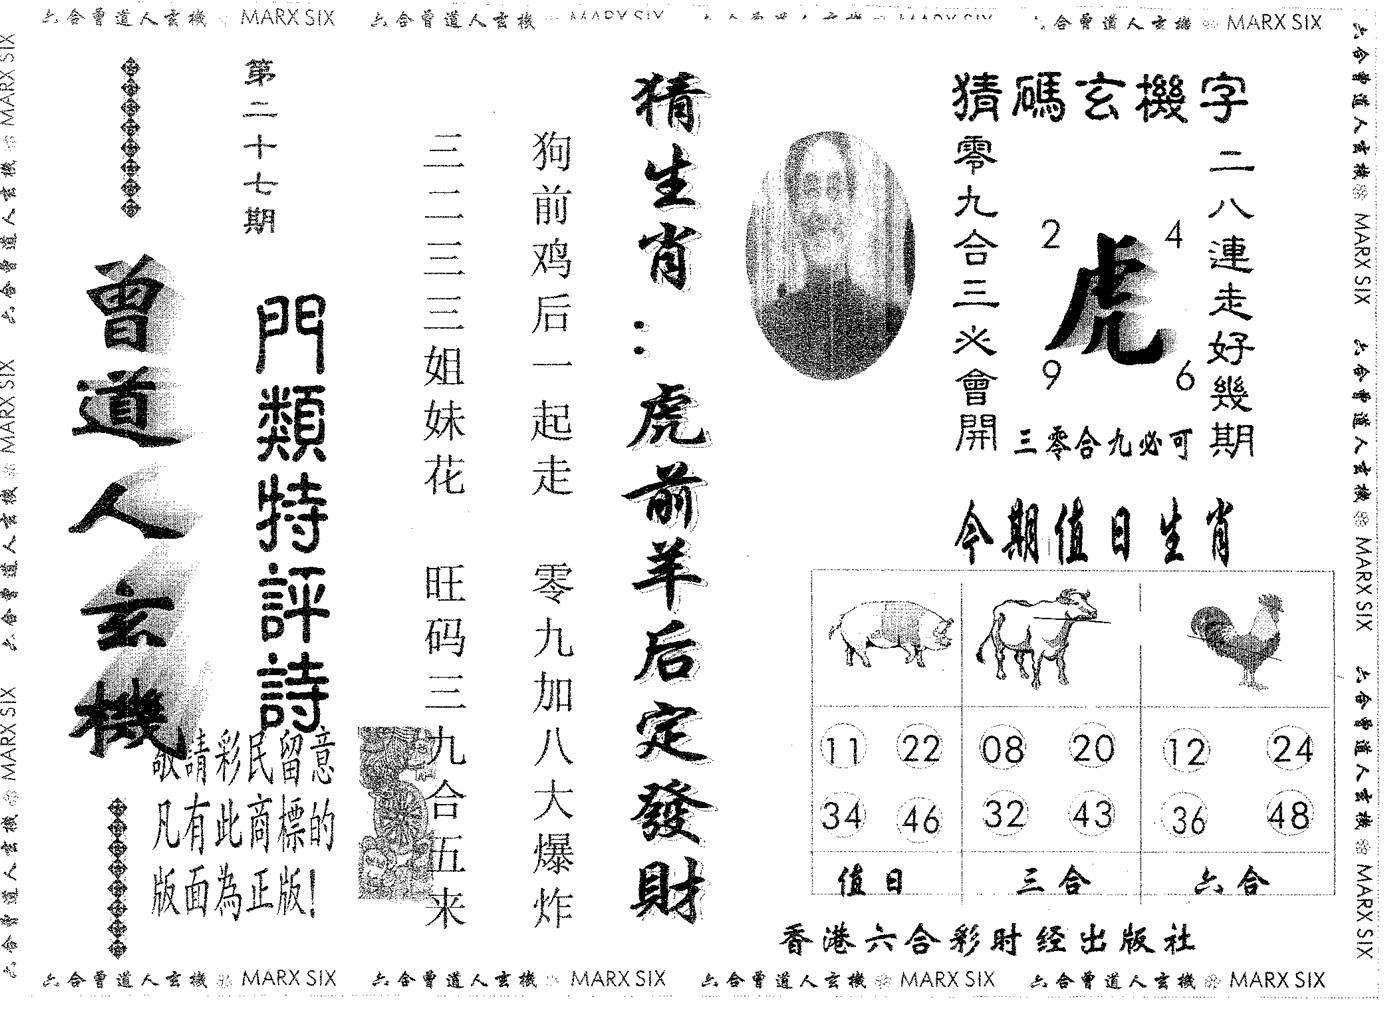 六合曾道人玄機 MARX SIX 六合曾道人玄機 六合曾道人玄機 MARX SIX
第二十七期
曾道人玄機
門類特評詩
敬請彩民留意
凡有此商標的
版面為正版!
猜生肖:虎前羊后定發財
狗前鸡后一起走 零九加八大爆炸
三二三三姐妹花 旺码三九合五来
猜碼玄機字
二八連走好幾期
零九合三必會開
2 4
虎
9 6
三零合九必可
今期值日生肖
11 22 08 20 12 24
34 46 32 43 36 48
值日 三合 六合
香港六合彩时经出版社
六合曾道人玄機 MARX SIX 六合曾道人玄機 MARX SIX 六合曾道人玄機 MARX SIX 六合曾道人玄機 MARX SIX
六合曾道人玄機 MARX SIX 六合曾道人玄機 MARX SIX 六合曾道人玄機 MARX SIX
六合曾道人玄機 MARX SIX 六合曾道人玄機 MARX SIX 六合曾道人玄機 MARX SIX